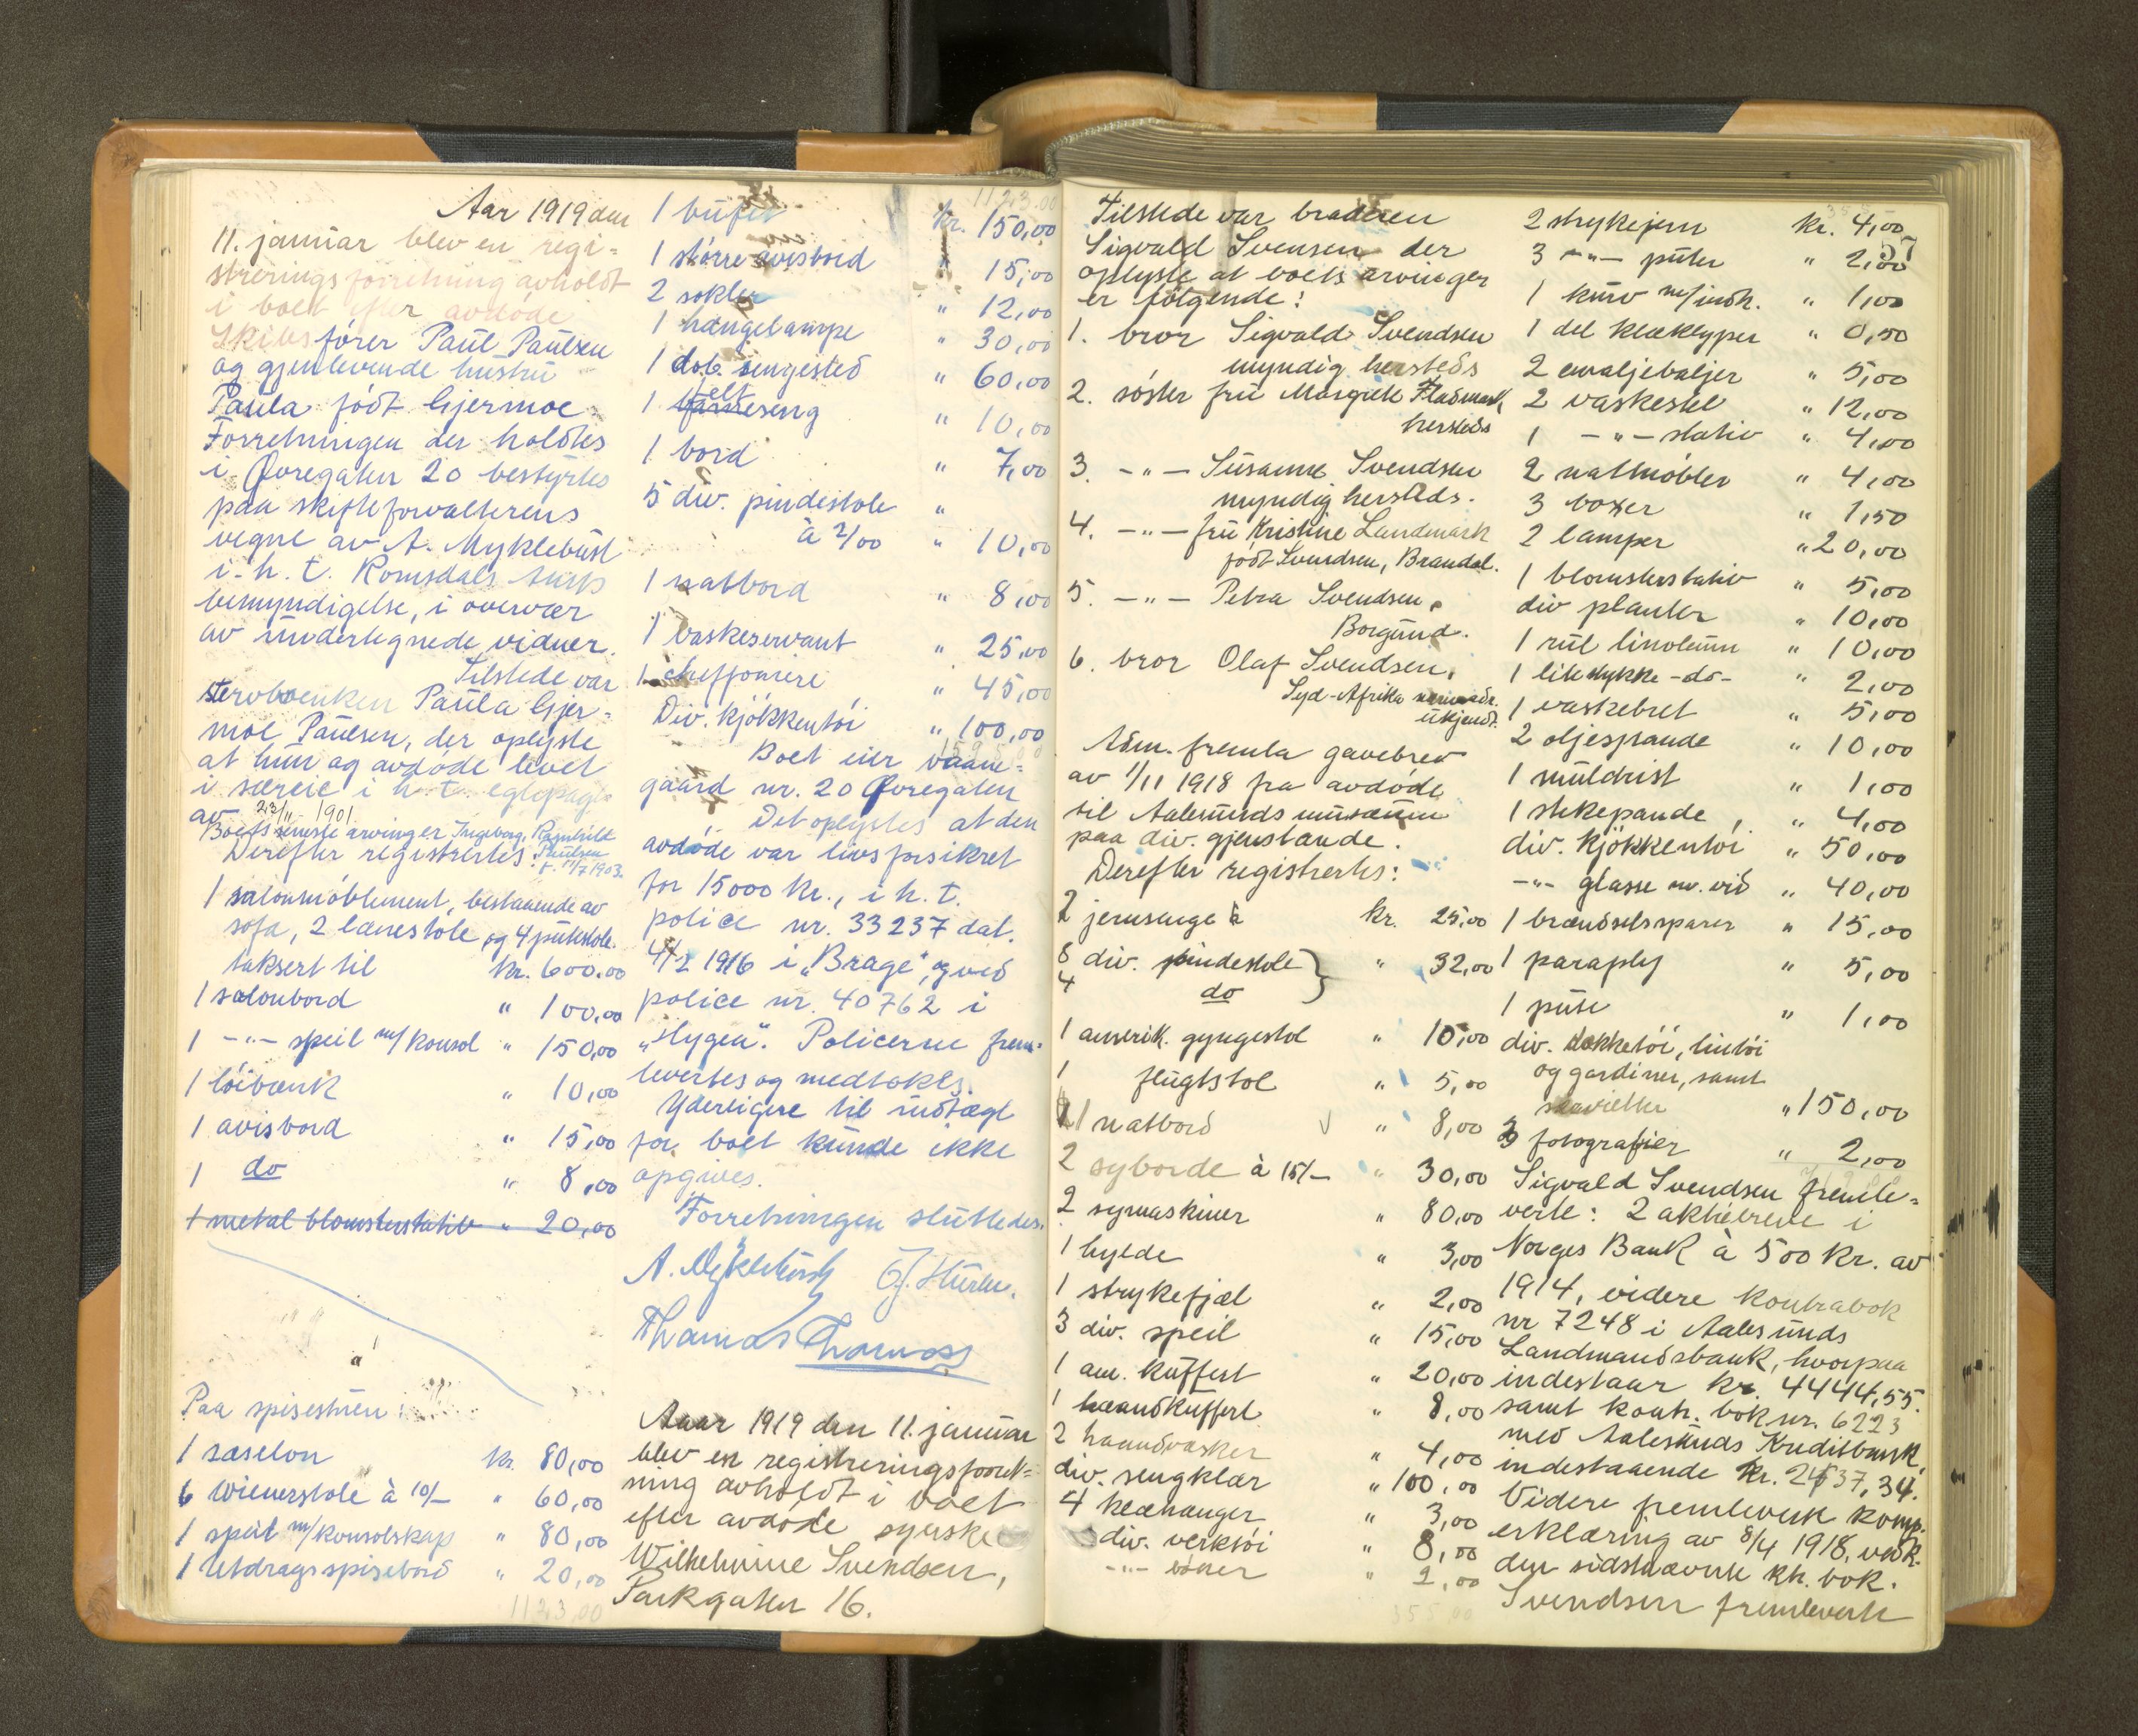 Aar 1919 den
11. januar blev en regi-
streringsforretning avholdt
i boet efter avdøde
Skibsfører Paul Paulsen
og gjenlevende hustru
Paula født Gjermoe.
Forretningen der holdtes
i Øvregaten 20 bestyrtes
paa skifteforvalterens
vegne av A. Myklebust
i h. t. Romsdals amts
bemyndigelse, i overvær
av undertegnede vidner.
Tilstede var
enken Paula Gjer-
moe Paulsen, der oplyste
at hun og avdøde levet
i særeie i h. t. egtepagt
av 23/11 1901.
Boets eneste arving er Ingeborg Ragnhild
Paulsen
f. 11/7 1903.
Derefter registrertes:
1 salonmøblement, bestaaende av
sofa, 2 lænestole og 4 putestole
taksert til kr. 600.00
1 salonbord " 100,00
1 -"- speil m/konsol " 150,00
1 løibænk " 10,00
1 avisbord " 15,00
1 do " 8,00
1 metal blomsterstativ " 20,00
Paa spisestuen:
1 saselon kr. 80,00
6 wienerstole à 10/- " 60,00
1 speil m/konsolskap " 80,00
1 utdragsspisebord " 20,00
1123,00
1123.00
1 bufet kr. 150,00
1 større avisbord " 15,00
2 sokler " 12,00
1 hængelampe " 30,00
1 dob. sengested " 60,00
1 feltseng " 10,00
1 bord " 7,00
5 div. pindestole "
à 2/00 " 10,00
1 natbord " 8,00
1 vaskeservant " 25,00
1 cheffoniere " 45,00
Div. kjøkkentøi " 100,00
Boet eier vaan-
gaard nr. 20 Øvregaten
Det oplystes at den
avdøde var livsforsikret
for 15000 kr., i h. t.
police nr. 33237 dat.
4/2 1916 i "Brage", og ved
police nr. 40762 i
"Hygea". Policerne frem-
levertes og medtokes.
Yderligere til indtægt
for boet kunde ikke
opgives.
Forretningen sluttedes.
A. Myklebust
Thomas Thomass
Aaar 1919 den 11. januar
blev en registreringsforret-
ning avholdt i boet
efter avdøde syerske
Wilhelmine Svendsen,
Parkgaten 16.
Tilstede var broderen
Sigvald Svensen der
oplyste at boets arvinger
er følgende:
1. bror Sigvald Svendsen
myndig hersteds
2. søster fru Margrete Fladmark
hersteds
3. -"- Susanne Svendsen
myndig hersteds.
4. -"- fru Kristine Landmark
født Svendsen, Brandal.
5. -"- Petra Svendsen,
Borgund.
6. bror Olaf Svendsen,
Syd-Afrika
ukjendt.
Adm. fremla gavebrev
av 1/11 1918 fra avdøde
til Aalesunds museum
paa div. gjenstande.
Derefter registrertes:
2 jernsenge kr. 25,00
8 div. pindestole
4 do " 32,00
1 amerik. gyngestol " 10,00
1 flugtstol " 5,00
1 natbord " 8,00
2 syborde à 15/- " 30,00
2 symaskiner " 80,00
1 hylde " 3,00
1 strykefjæl " 2,00
3 div. speil " 15,00
1 am. kuffert " 20,00
1 haandkuffert " 8,00
2 haandvasker " 4,00
div. sengklær " 100,00
4 klæhænger " 3,00
div. verktøi " 8,00
-"- bøker " 2,00
355,00
57
2 strykejern kr. 4,00
3 -"- puter " 2,00
1 kurv m/indh. " 1,00
1 del klæklyper " 0,50
2 emaljebaljer " 5,00
2 vaskestel " 12,00
1 -"- stativ " 4,00
2 natmøbler " 4,00
3 boxer " 1,50
2 lamper " 20,00
1 blomsterstativ " 5,00
div planter " 10,00
1 rul linoleum " 10,00
1 lite stykke -do- " 2,00
1 vaskebret " 5,00
2 oljespande " 10,00
1 muldrist " 1,00
1 stekepande " 4,00
div. kjøkkentøi " 50,00
-"- glasse m. vid " 40,00
1 brændselsparer " 15,00
1 paraply " 5,00
1 pute " 1,00
div. dækketøi, lintøi
og gardiner, samt
servietter " 150,00
3 fotografier " 2,00
Sigvald Svendsen fremle-
verte: 2 aktiebreve i
Norges Bank à 500 kr. av
1914, videre kontrabok
nr 7248 i Aalesunds
Landmandsbank, hvorpaa
indestaar kr. 4444,55.
samt kontr. bok nr. 6223
med Aalesunds Kreditbank,
indestaaende kr. 2537,34.
Videre fremleverte komp.
erklæring av 8/4 1918, vedk.
den sidstnævnte kt. bok.
Svendsen fremleverte